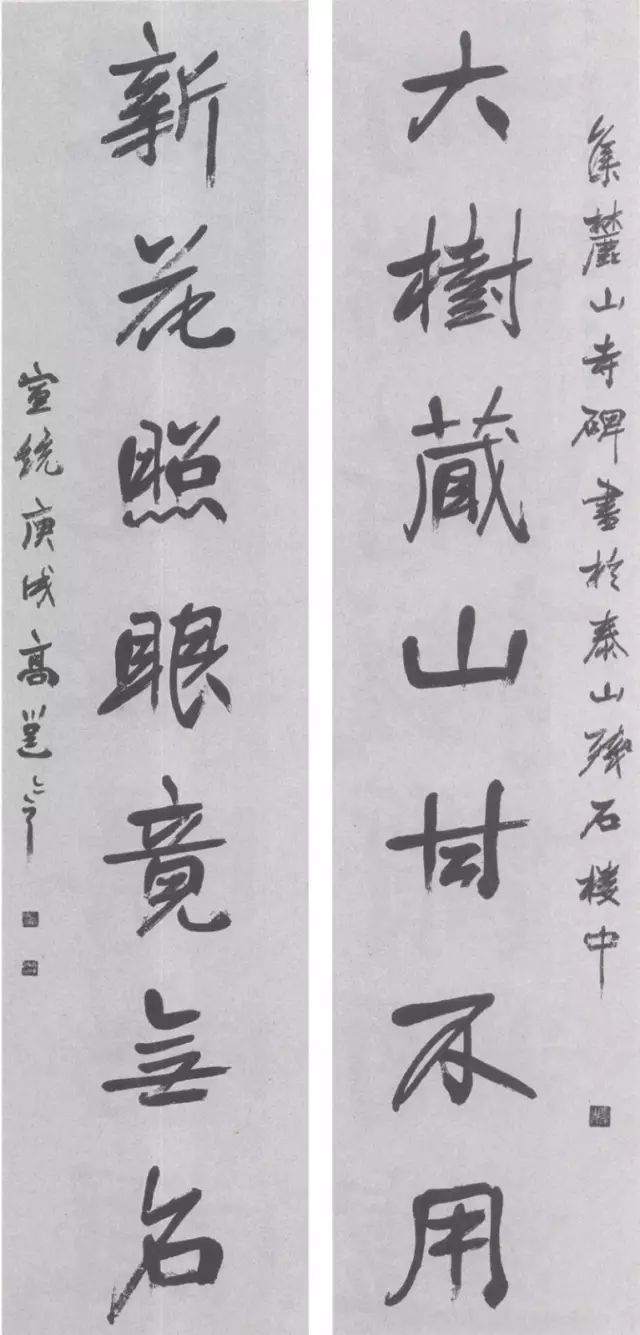 集麓山寺碑書於泰山殘石樓中
大樹藏山甘不用
新花照眼竟無名
宣統庚戌高邕